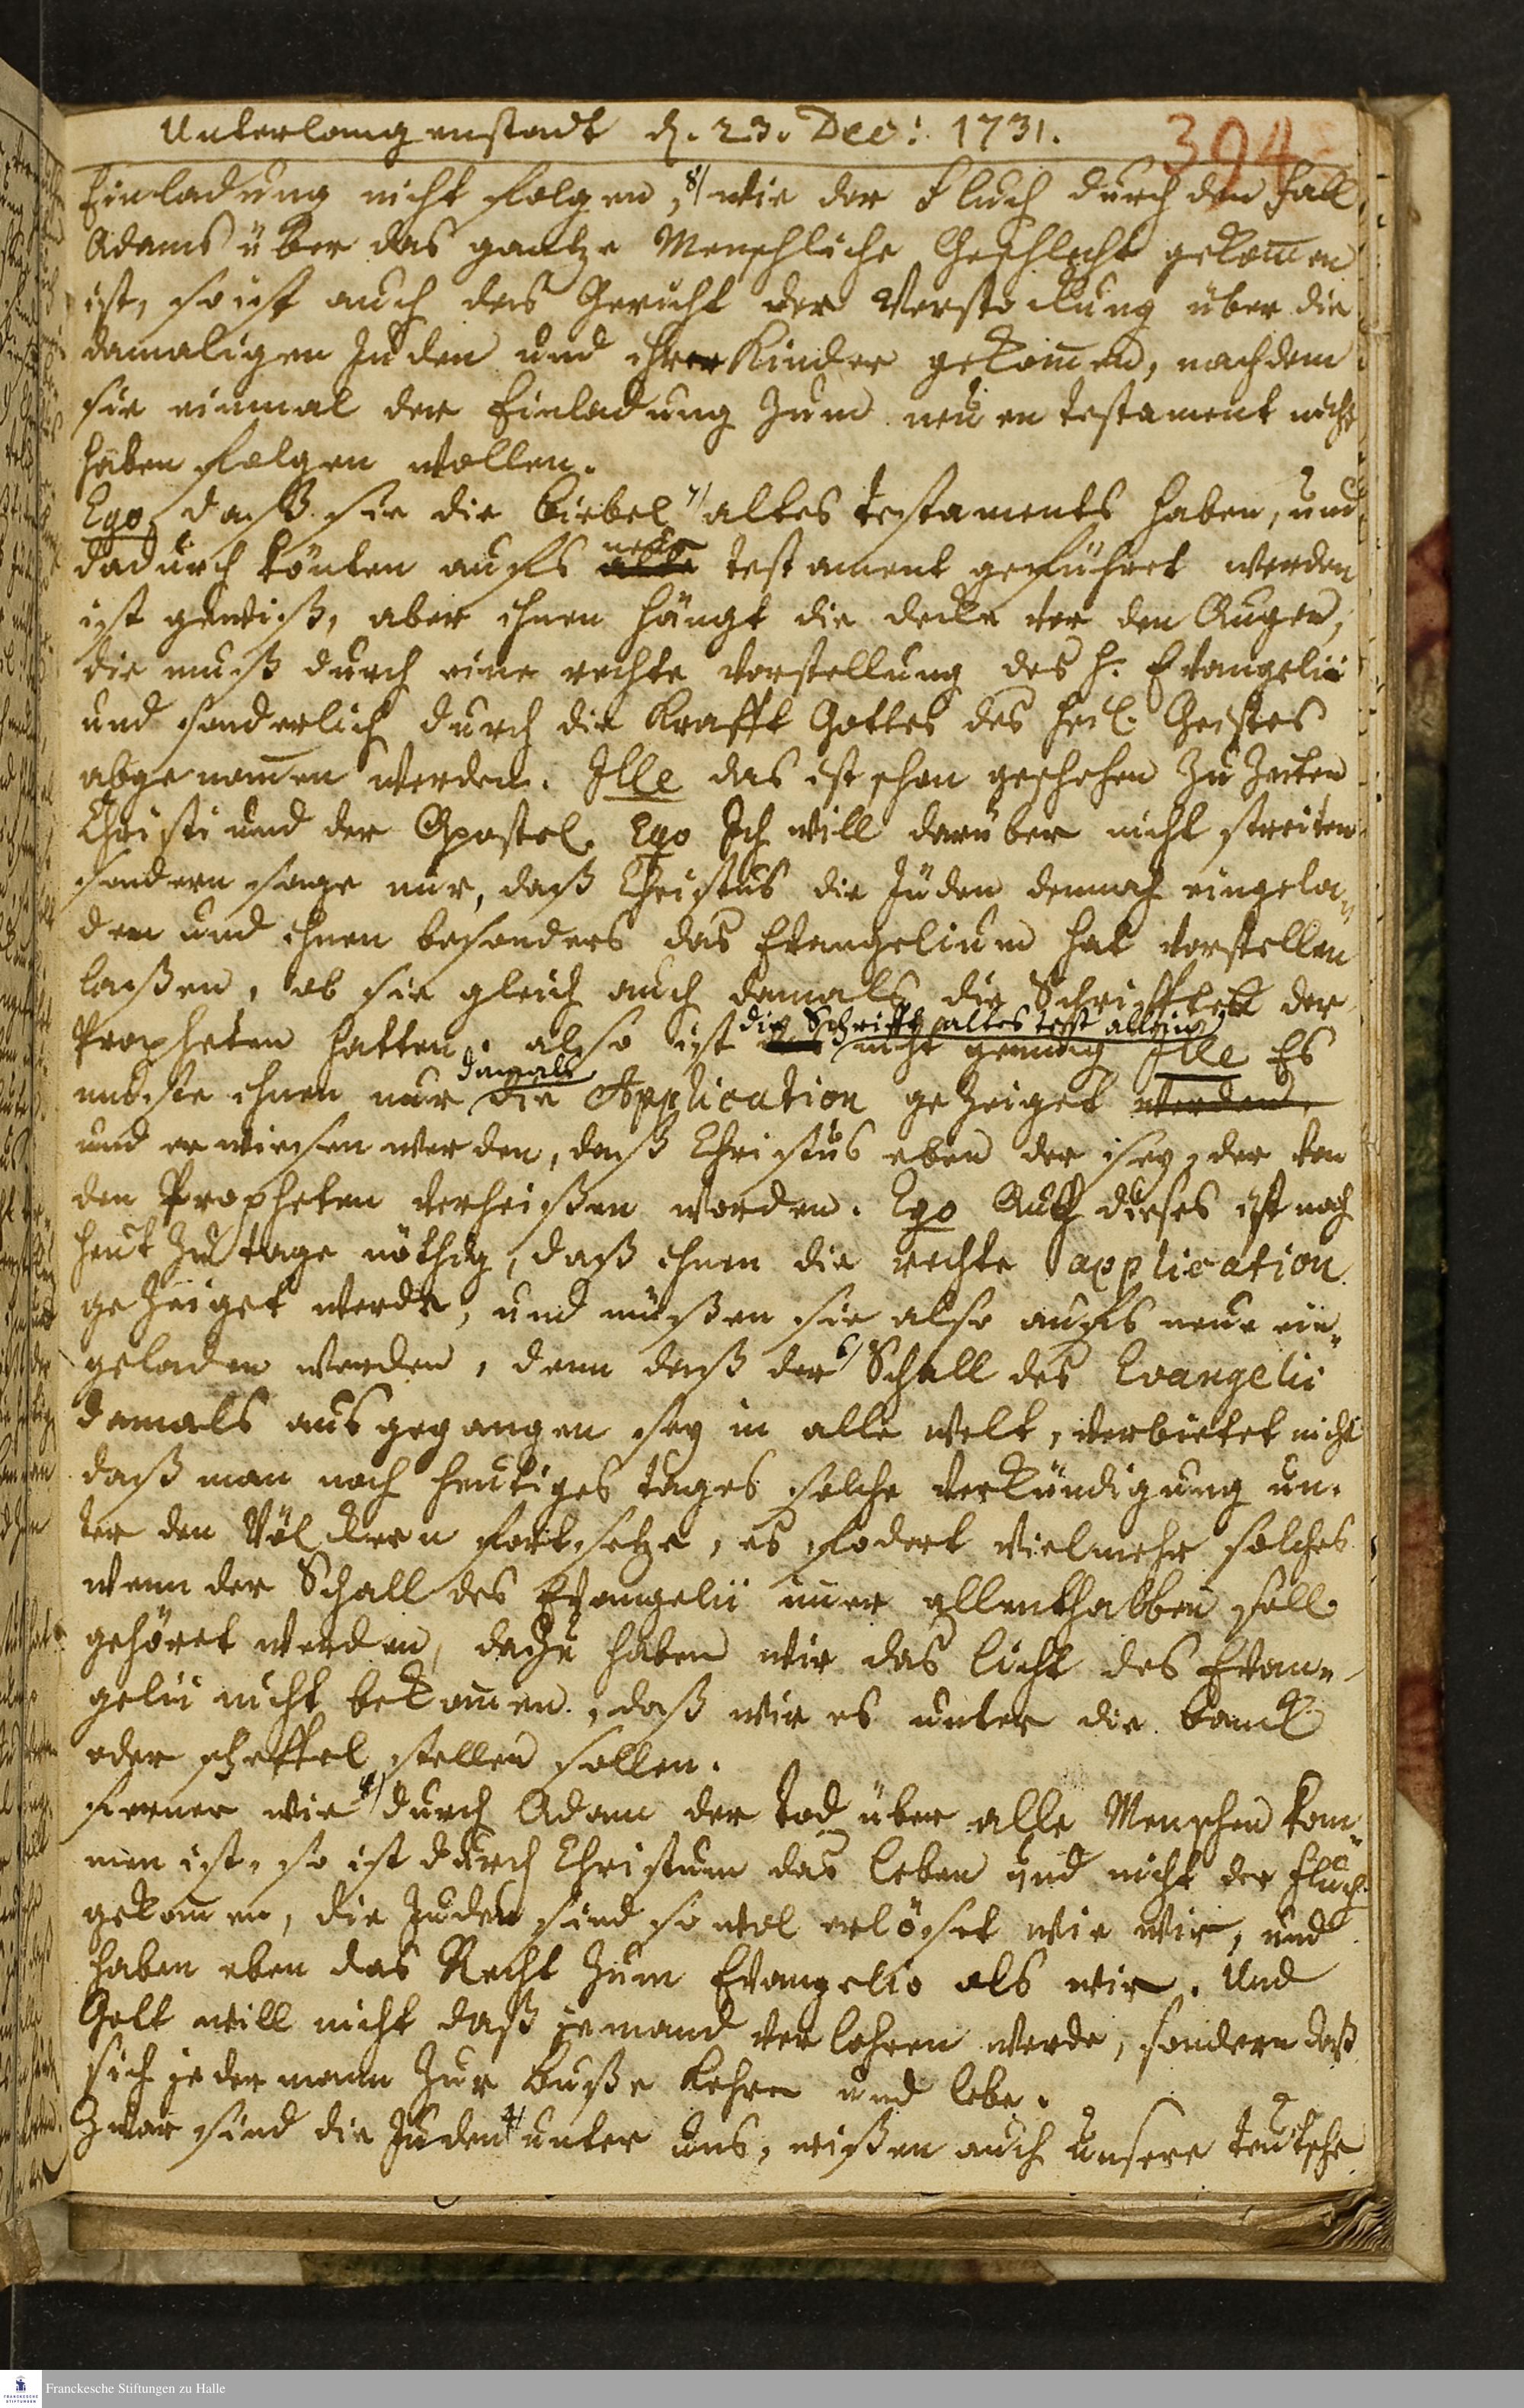 Unterlangenstadt d. 23. Dec: 1731.
394
Einladung nicht folgen, 8/ wie der Fluch durch den Fall
Adams über das gantze Menschliche Geschlecht gekom̄en
ist, so ist auch das Gericht der Verstockung über die
damaligen Juden und ihrer Kinder gekom̄en, nachdem
sie einmal der Einladung zum neuen Testament nicht
haben folgen wollen.
Ego, daß sie die Biebel 7/ altes Testaments haben, und
neue
dadurch könten aufs alte Testament geführet werden
ist gewiß, aber ihnen hängt die Decke vor den Augen,
die muß durch eine rechte Vorstellung des H. Evangelii
und sonderlich durch die Krafft Gottes des heil. Geistes
abgenom̄en werden. Ille das ist schon geschehen zu Zeiten
Christi und der Apostel. Ego Ich will darüber nicht streiten
sondern sage nur, daß Christus die Juden dennoch eingela-
den und ihnen besonders das Evangelium hat vorstellen
laßen, ob sie gleich auch damals die Schrifften der
die Schrifft altes Test allein
Propheten hatten. also ist nicht genung Ille Es
damals
muste ihnen nur die Application gezeiget werden,
und erwiesen werden, daß Christus eben der sey, der von
den Propheten verheißen worden. Ego Auch dieses ist noch
heut zu tage nöthig, daß ihnen die rechte application
gezeiget werde, und müßen sie also aufs neue ein-
geladen werden, denn daß der 6/ Schall des Evangelii
damals ausgegangen sey in alle Welt, verbietet nicht
daß man noch heutiges tages solche Verkündigung un-
ter den Völckern fortsetze, es fodert vielmehr solches
wenn der Schall des Evangelii im̄er allenthalben soll
gehöret werden, dazu haben wir das Licht des Evan-
gelii nicht bekom̄en, daß wir es unter die banck
oder scheffel stellen sollen.
Ferner wie 4/ durch Adam der Tod über alle Menschen kom-
men ist, so ist durch Christum das Leben und nicht der Fluch
gekom̄en, die Juden sind so wol erlöset wie wir, und
haben eben das Recht zum Evangelio als wir. Und
Gott will nicht daß jemand verlohren werde, sondern daß
sich jederman zur Buße kehre und lebe.
Zwar sind die Juden 4/ unter uns, wißen auch unsere teutsche
Franckesche Stiftungen zu Halle